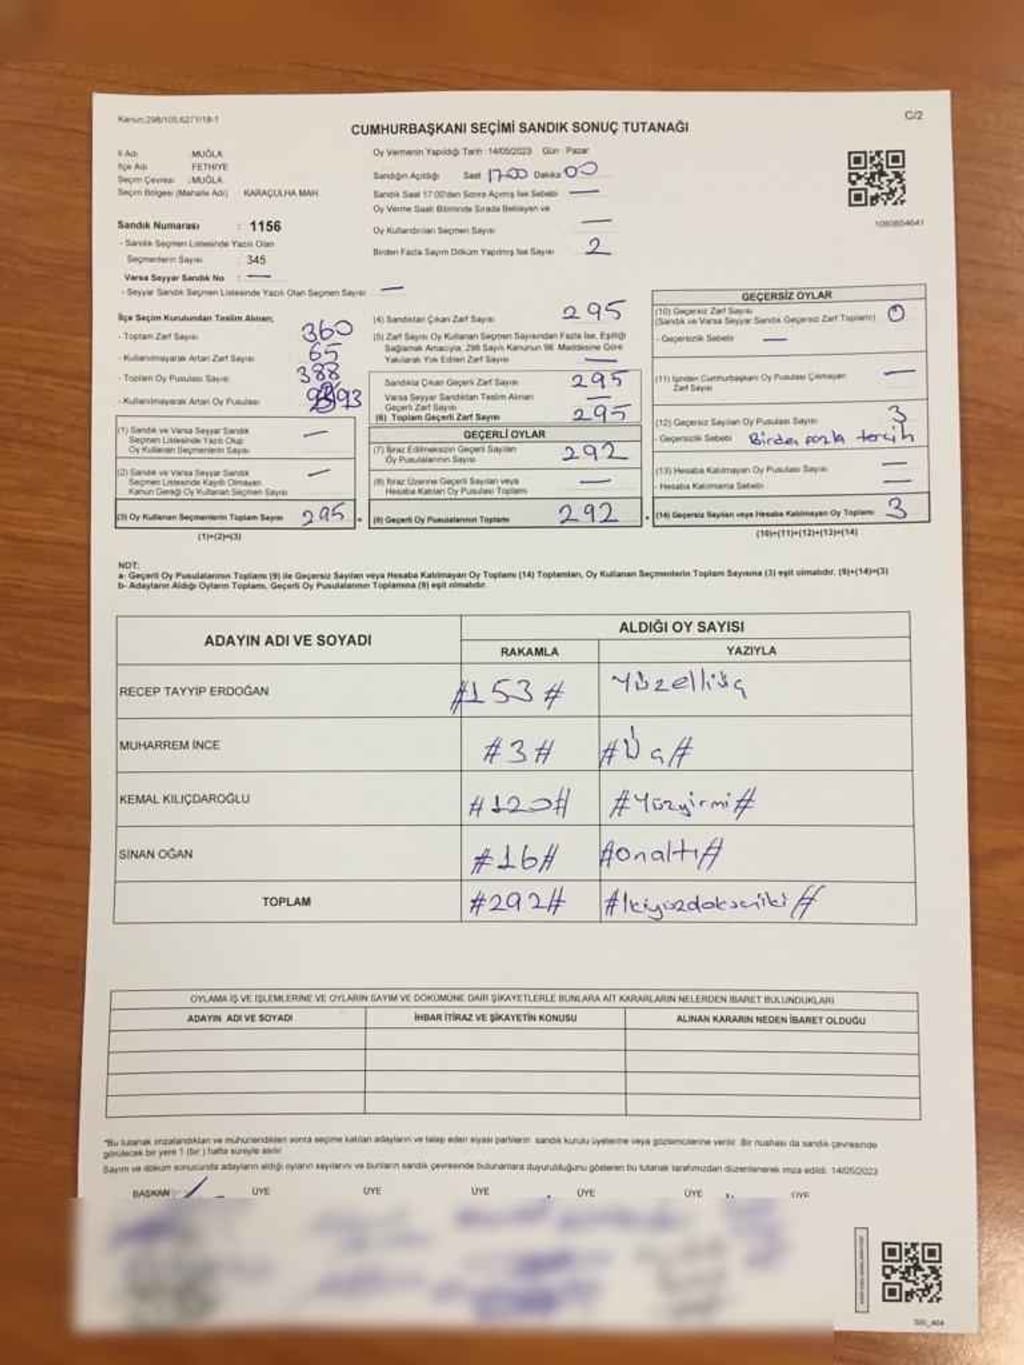 Kanun:298/105,6271/18-1
C/2
CUMHURBAŞKANI SEÇİMİ SANDIK SONUÇ TUTANAĞI
İl Adı : MUĞLA
İlçe Adı : FETHİYE
Seçim Çevresi : MUĞLA
Seçim Bölgesi (Mahalle Adı) : KARAÇULHA MAH.
Sandık Numarası : 1156
- Sandık Seçmen Listesinde Yazılı Olan
Seçmenlerin Sayısı : 345
Varsa Seyyar Sandık No : —
- Seyyar Sandık Seçmen Listesinde Yazılı Olan Seçmen Sayısı : —
Oy Vermenin Yapıldığı Tarih : 14/05/2023 Gün : Pazar
Sandığın Açıldığı Saat 17:00 Dakika 00
Sandık Saat 17:00'den Sonra Açılmış İse Sebebi —
Oy Verme Saati Bitiminde Sırada Bekleyen ve
Oy Kullandırılan Seçmen Sayısı —
Birden Fazla Sayım Döküm Yapılmış İse Sayısı 2
1060804641
İlçe Seçim Kurulundan Teslim Alınan;
- Toplam Zarf Sayısı 360
- Kullanılmayarak Artan Zarf Sayısı 65
- Toplam Oy Pusulası Sayısı 388
- Kullanılmayarak Artan Oy Pusulası 93
(1) Sandık ve Varsa Seyyar Sandık
Seçmen Listesinde Yazılı Olup
Oy Kullanan Seçmenlerin Sayısı —
(2) Sandık ve Varsa Seyyar Sandık
Seçmen Listesinde Kayıtlı Olmayan
Kanun Gereği Oy Kullanan Seçmen Sayısı —
(3) Oy Kullanan Seçmenlerin Toplam Sayısı 295
(1)+(2)=(3)
(4) Sandıktan Çıkan Zarf Sayısı 295
(5) Zarf Sayısı Oy Kullanan Seçmen Sayısından Fazla İse, Eşitliği
Sağlamak Amacıyla, 298 Sayılı Kanunun 98. Maddesine Göre
Yakılarak Yok Edilen Zarf Sayısı —
Sandıkta Çıkan Geçerli Zarf Sayısı 295
Varsa Seyyar Sandıktan Teslim Alınan
Geçerli Zarf Sayısı —
(6) Toplam Geçerli Zarf Sayısı 295
GEÇERLİ OYLAR
(7) İtiraz Edilmeksizin Geçerli Sayılan
Oy Pusulalarının Sayısı 292
(8) İtiraz Üzerine Geçerli Sayılan veya
Hesaba Katılan Oy Pusulası Toplamı —
(9) Geçerli Oy Pusulalarının Toplamı 292
GEÇERSİZ OYLAR
(10) Geçersiz Zarf Sayısı
(Sandık ve Varsa Seyyar Sandık Geçersiz Zarf Toplamı) 0
- Geçersizlik Sebebi —
(11) İçinden Cumhurbaşkanı Oy Pusulası Çıkmayan
Zarf Sayısı —
(12) Geçersiz Sayılan Oy Pusulası Sayısı 3
- Geçersizlik Sebebi Birden fazla tercih
(13) Hesaba Katılmayan Oy Pusulası Sayısı —
- Hesaba Katılmama Sebebi —
(14) Geçersiz Sayılan veya Hesaba Katılmayan Oy Toplamı 3
(10)+(11)+(12)+(13)=(14)
NOT:
a- Geçerli Oy Pusulalarının Toplamı (9) ile Geçersiz Sayılan veya Hesaba Katılmayan Oy Toplamı (14) Toplamları, Oy Kullanan Seçmenlerin Toplam Sayısına (3) eşit olmalıdır. (9)+(14)=(3)
b- Adayların Aldığı Oyların Toplamı, Geçerli Oy Pusulalarının Toplamına (9) eşit olmalıdır.
ADAYIN ADI VE SOYADI
ALDIĞI OY SAYISI
RAKAMLA YAZIYLA
RECEP TAYYİP ERDOĞAN #153# Yüzelliüç
MUHARREM İNCE #3# #Üç#
KEMAL KILIÇDAROĞLU #120# #Yüzyirmi#
SİNAN OĞAN #16# #onaltı#
TOPLAM #292# #İkiyüzdoksaniki#
OYLAMA İŞ VE İŞLEMLERİNE VE OYLARIN SAYIM VE DÖKÜMÜNE DAİR ŞİKAYETLERLE BUNLARA AİT KARARLARIN NELERDEN İBARET BULUNDUKLARI
ADAYIN ADI VE SOYADI İHBAR İTİRAZ VE ŞİKAYETİN KONUSU ALINAN KARARIN NEDEN İBARET OLDUĞU
*Bu tutanak imzalandıktan ve mühürlendikten sonra seçime katılan adayların ve talep eden siyasi partilerin sandık kurulu üyelerine veya gözlemcilerine verilir. Bir nushası da sandık çevresinde
görülecek bir yere 1 (bir) hafta süreyle asılır.
Sayım ve döküm sonucunda adayların aldığı oyların sayılarını ve bunların sandık çevresinde bulunanlara duyurulduğunu gösteren bu tutanak tarafımızdan düzenlenerek imza edildi. 14/05/2023
BAŞKAN ÜYE ÜYE ÜYE ÜYE ÜYE ÜYE